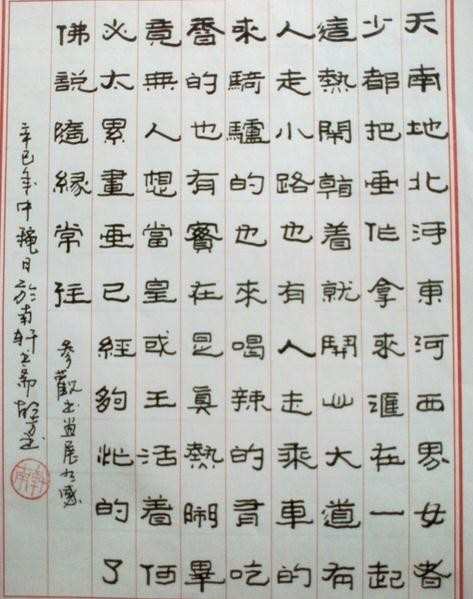 天南地北河東河西男女老
少都把画作拿來滙在一起
這熱鬧朝着就鬧山大道有
人走小路也有人走乘車的
來騎驢的也來喝辣的有吃
香的也有實在是真熱鬧畢
竟無人想當皇或王活着何
必太累畫画已經夠忙的了
佛說隨緣常往
參觀书画展有感
辛巳年中穐日於南軒书斋